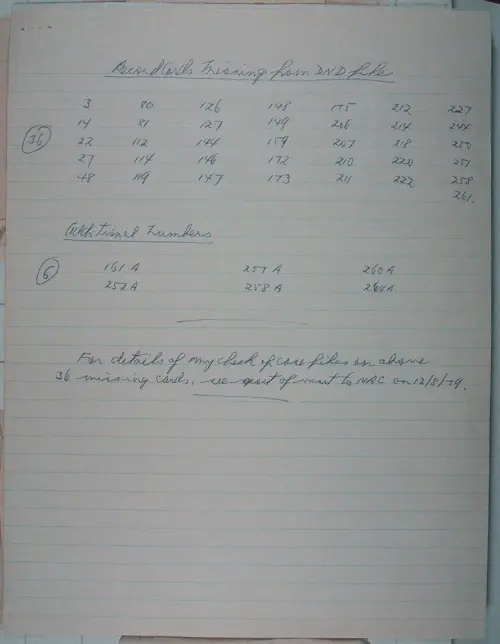 Record Cards Missing from DND file
3 80 126 148 175 212 227
14 81 127 149 206 214 244
36 22 112 144 159 207 218 250
27 114 146 172 210 220 251
48 119 147 173 211 222 258
261.
Additional Numbers
6 161 A 257 A 260 A
252 A 258 A 264 A
For details of my check of case files on above
36 missing cards, see of visit to NRC on 13/8/79.